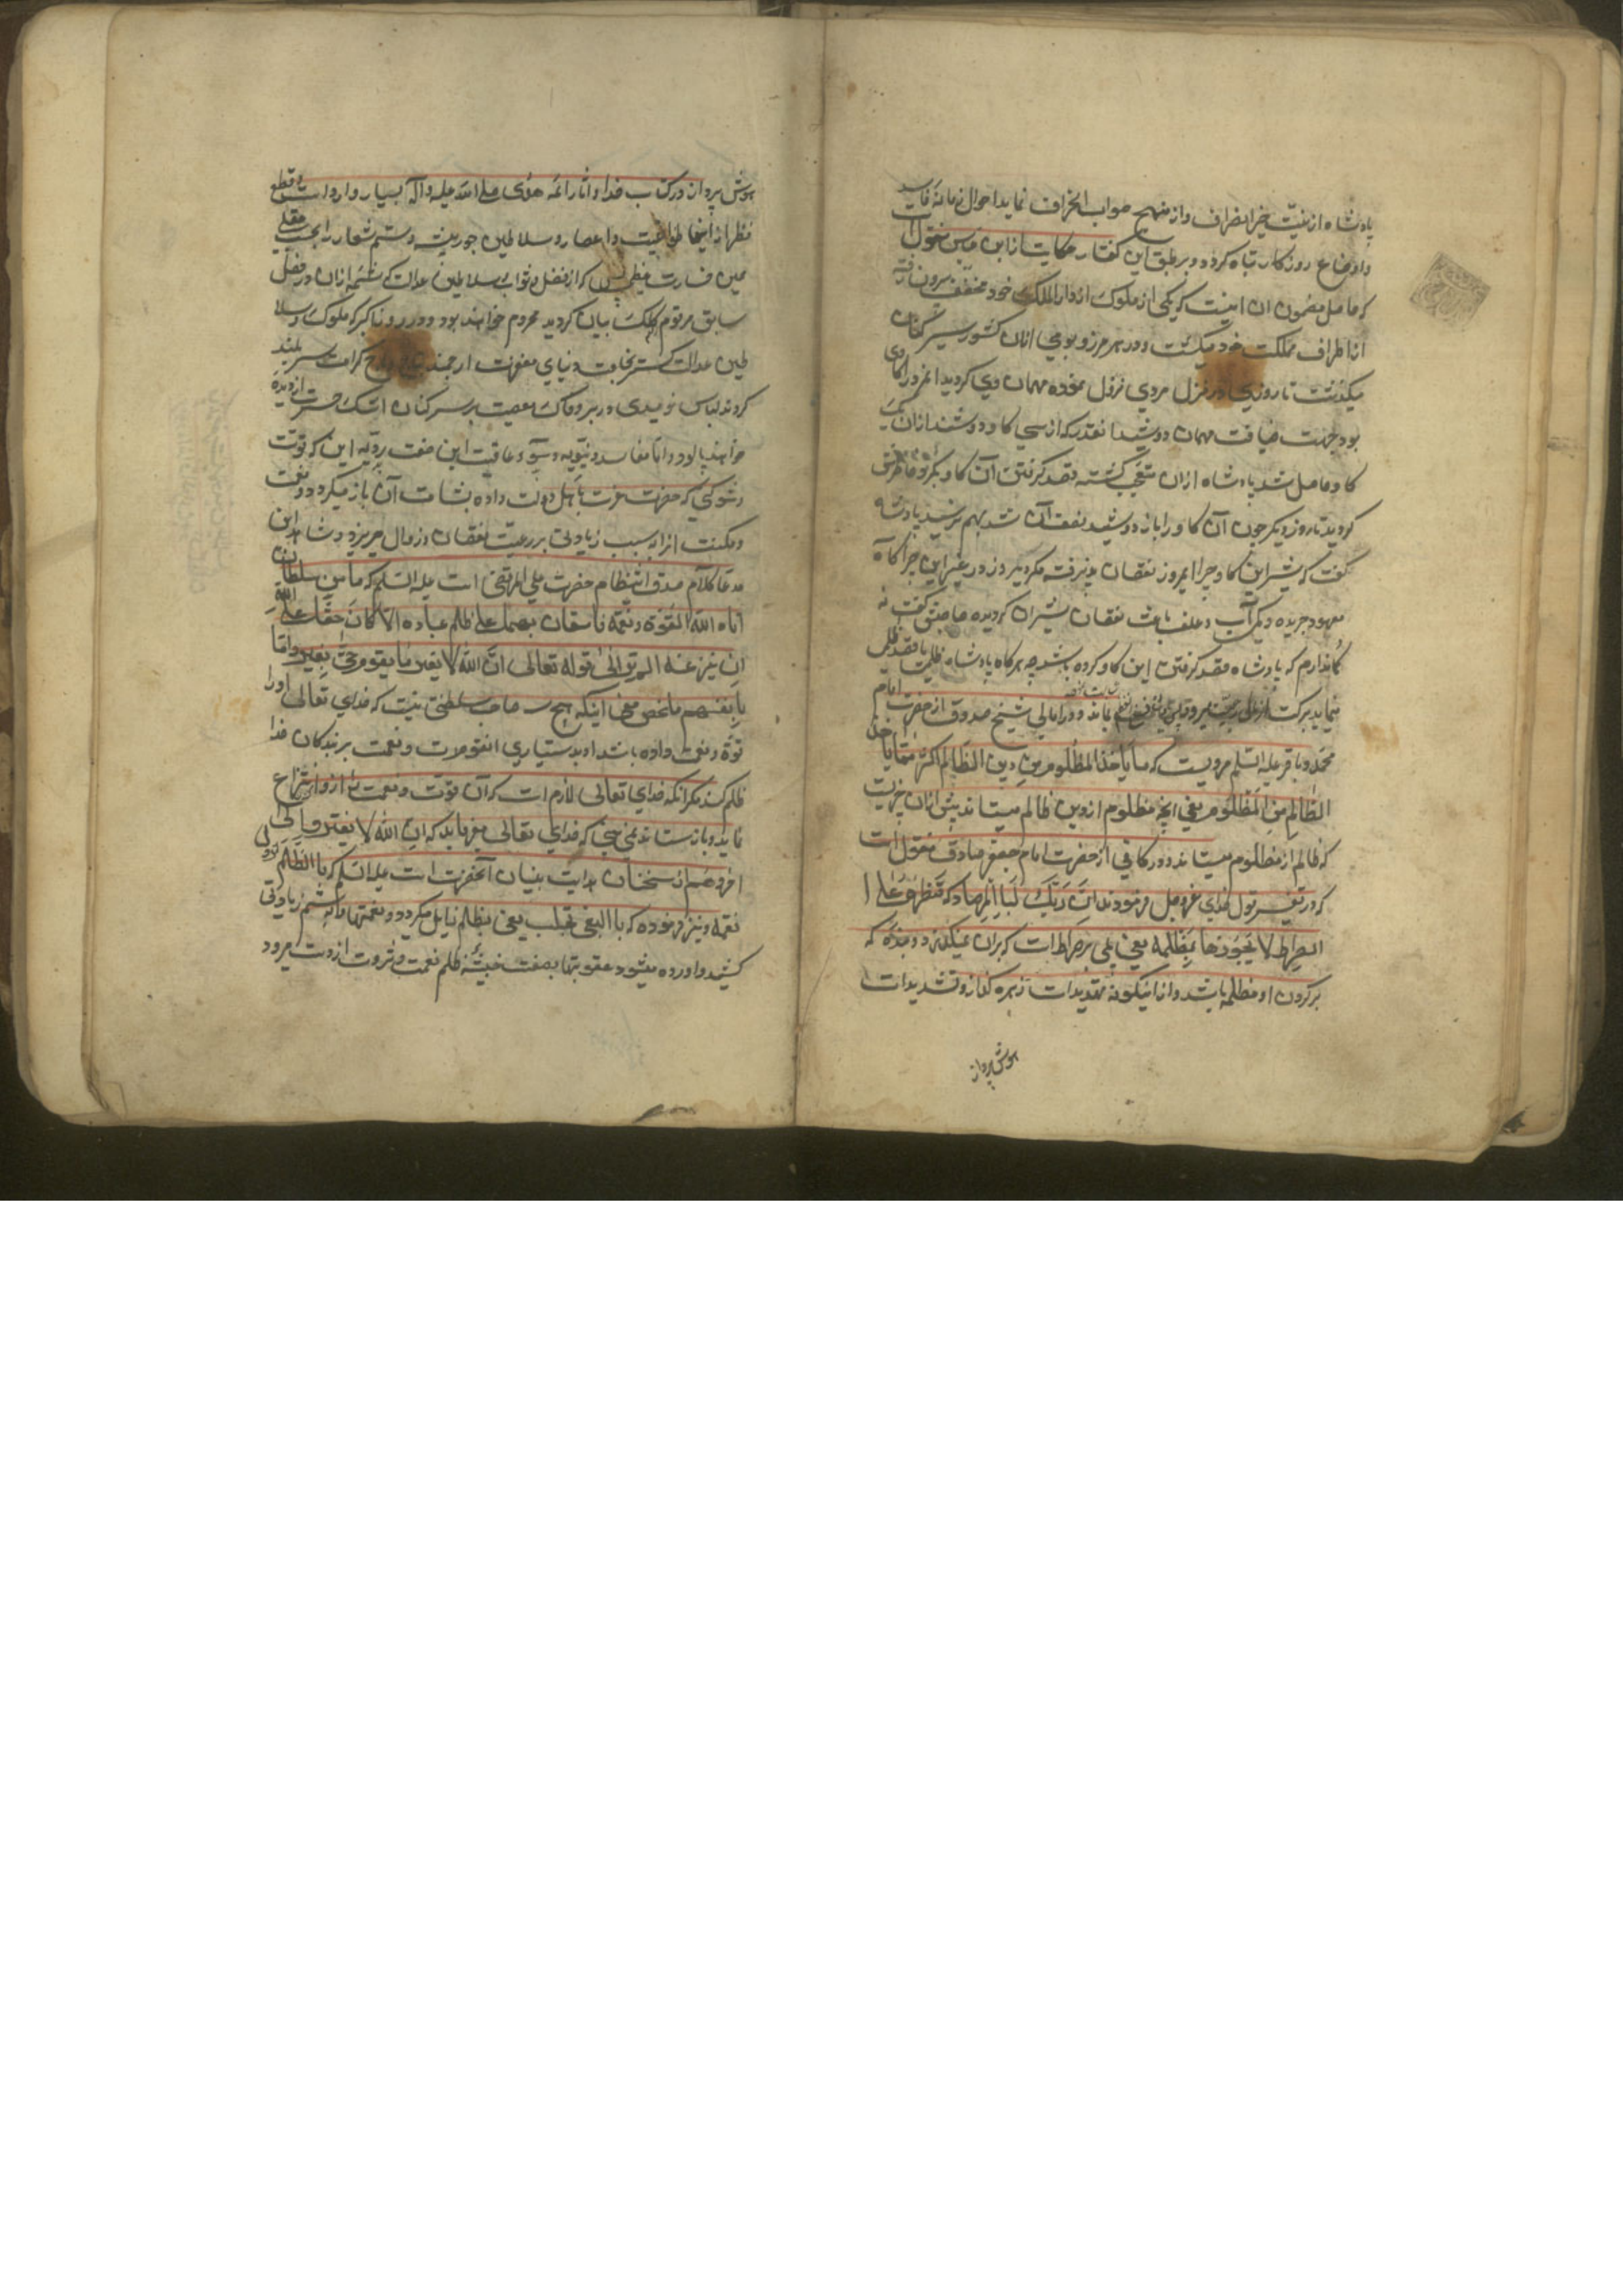 پادشاه از نیّت خیر انصراف و از منهج صواب انحراف نماید احوال زمانه فاسد
و اوضاع روزکار تباه کردد و بر طبق این کفتار حکایت از ابن عباس منقول است
که حاصل مضمون ان اینست که یکی از ملوک از دار الملک خود مخفف بیرون رفته
در اطراف مملکت خود میکشت و در هر مرز و بومی از ان کشور سیر کنان
میکذشت تا روزی در منزل مردی نزول نموده مهمان وی کردید انمرد را کاوی
بود جهت ضیافت مهمان دوشید انقدر که از سی کاو دوشند از ان یک
کاو حاصل شد پادشاه ازان متعجب کشته قصد کرفتن آن کاو
کردید تا روز دیکر چون آن کاو را باز دوشید نصف آن شد بهم نرسید پادشاه
کفت که شیر این کاو چرا امروز نقصان پذیرفته مکر دیروز در غیر این چراکاه
معهود چریده و یکی آب و علف باعث نقصان شیر ان کردیده صاحبش کفت نه
کمان دارم که پادشاه قصد کرفتن این کاو کرده باشد چه هرکاه پادشاه ظلم یا قصد ظلم
نماید برکت از میان رعیت بیرون و در امالی شیخ صدوق از حضرت امام
محمد باقر علیه السلم مرویست که ما یاخذ المظلوم من دین الظالم اکثر مما یاخذ
الظالم من المظلوم یعنی انچه مظلوم از دین ظالم میستاند بیش ازان چیزیست
که ظالم از مظلوم میستاند و در کافی از حضرت امام جعفر صادق منقول است
که در تفسیر قول خدای عزوجل فرمودند ان ربک لبا المرصاد که قنطرة علی ا
الصراط لا یجوزها بمظلمه یعنی پلی بر صراط است که بران نمیکذرد بنده که
بر کردن او مظلمه باشد و از اینکونه تهدیدات زهره کداز و تشدیدات
هوش پرداز
هوش پرداز در کتاب خدا و اثار ائمه هدی صلی الله علیه و آله بسیار وارد است و قطع
نظر از اینها طواغیت اعصار و سلاطین جور پیشه و ستم شعار را بحسب عقلی
همین خسارت که از فضل و ثواب سلاطین عدالت که شمه از ان در فصل
سابق مرقوم کلک بیان کردید محروم خواهند بود و در روز ناکزیر که ملوک و سلا
طین عدالت کستر بخلعت دنیای مغفرت ارجمند و بتاج کرامت سربلند
کردند لباس نومیدی در بر و خاک معصیت بر سر کنان اشک حسرت از دیده
خواهند پالود و اما مفاسد دنیویه و سوء عاقبت این صفت ردیّه این که قوّت
و شوکتی که حضرت عزت باهل دولت داده بشامت آن باز میکردد و نعمت
و مکنت انرا بسبب زیادتی بر رعیت نقصان و زوال میپذیرد و شاهد این
مدعا کلام صدق انتظام حضرت علی المرتضی است علیه السلم که ما من سلطان
اتاه الله القوة و نعمه فاستعان بهما علی ظلم عباده الا کان حقا علی الله
ان ینزعنه الم تر الی قوله تعالی ان الله لا یغیر ما بقوم حتی یغیروا ما
بانفسهم ملخص معنی اینکه هیچ صاحب سلطنتی نیست که خدای تعالی اورا
قوة و نعمت داده باشد او بدستیاری انقوت و نعمت بر بندکان خدا
ظلم کند مکر انکه خدای تعالی لازم است که آن قوّت و نعمت را ازو انتزاع
نماید و باز ستاند نمی بینی که خدای تعالی میفرماید که ان الله لا یغیر
و هم از سخنان هدایت بنیان آنحضرت است علیه السلم که با الظلم تزول
نعمه و نیز فرموده که با البغی تجلب یعنی بظلم زایل میکردد و نعمتها و به ستم و زیادتی
کشیده و آورده میشود عقوبتها بصفت خبیثه ظلم نعمت و ثروت از دست میرود